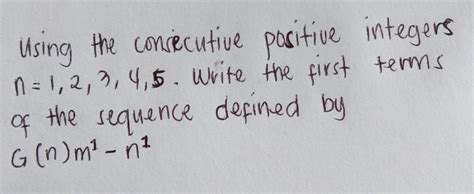 Using the consecutive positive integers
n = 1, 2, 3, 4, 5. Write the first terms
of the sequence defined by
G(n)m¹ - n¹